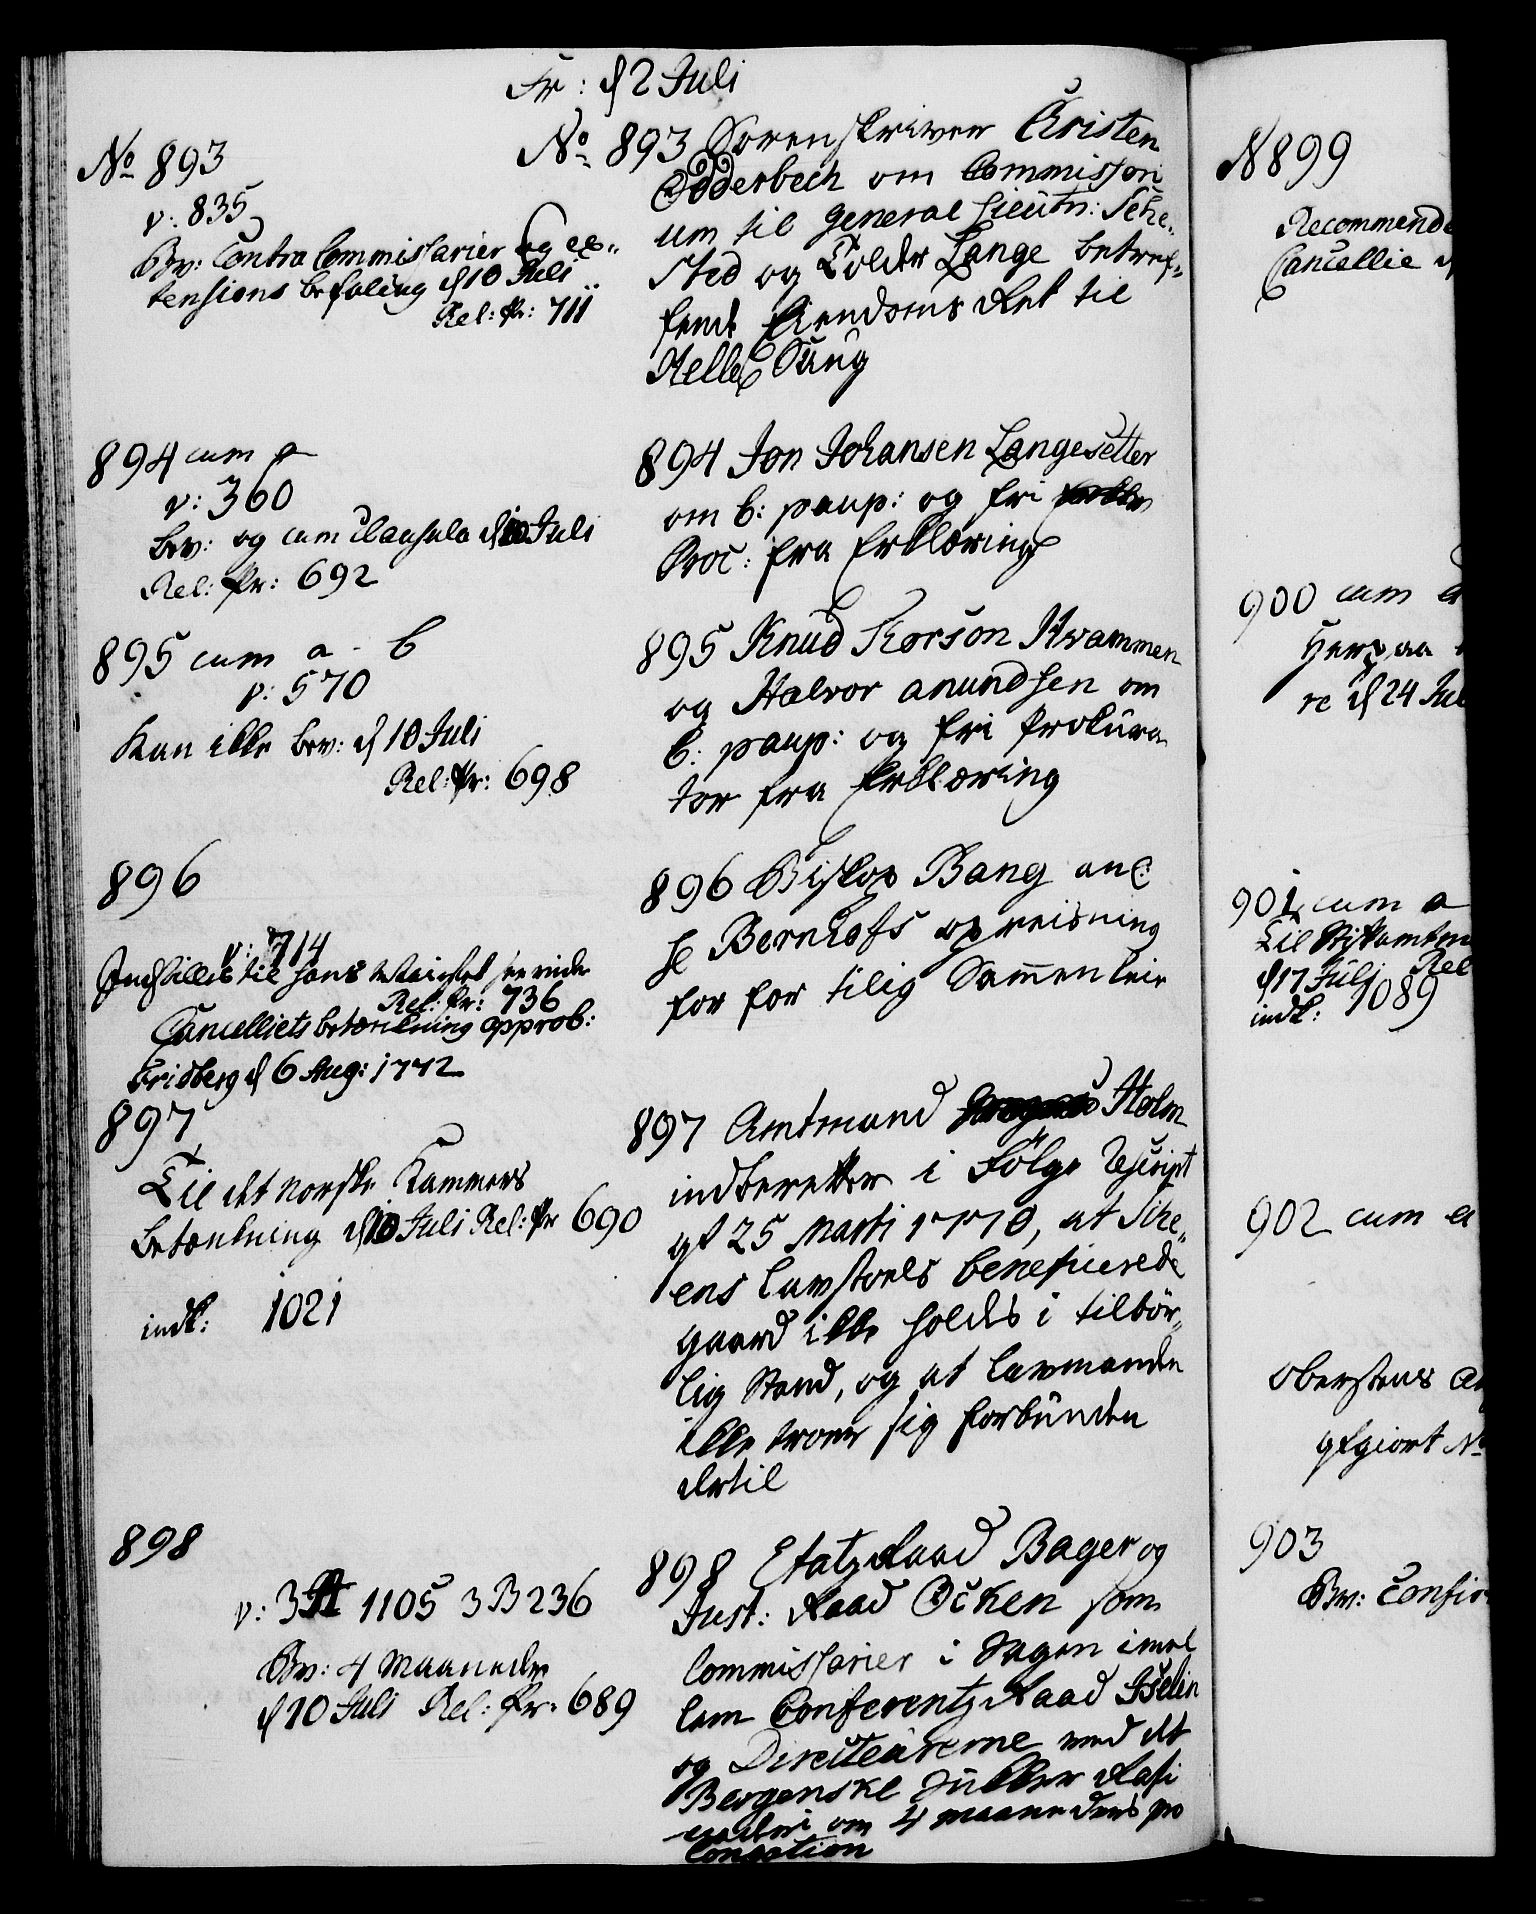 Fr: d 2 Juli
No 893
v: 835
Bev: Contra Commissarier og ex-
tensions befaling d 10 Juli
Rel: Pr: 711
No 893 Sorenskriver Christen
Edderbech om Commissori
um til General Lieutn: Sche-
sted og Tolder Lange betref-
fende Eiendoms Ret til
Helle Saug
894 cum a
v: 360
bev: og cum Clausula d 10 Juli
Rel: Pr: 692
894 Jon Johansen Langesetter
om b: paup: og fri
Proc: fra Erklæring
895 cum a - b
v: 570
Kan ikke bev: d 10 Juli
Rel: Pr: 698
895 Knud Torson Hvammen
og Halvor anundsen om
b: paup: og fri Prokura
tor fra Erklæring
896
v: 714
Indstilles til hans Maiestet
Rel: Pr: 736
Cancelliets betænkning approb:
Fridberg d 6 Aug: 1772
896 Biskop Bang anl:
H Bernhofs opreisning
for for tilig Sammenleie
897
Til det norske Kammers
betænkning d 10 Juli Rel: Pr 690
indk: 1021
897 Amtmand Holm
indberetter i Følge Rescript
af 25 Marti 1770, at Ske-
ens lavstoels beneficerede
gaard ikke holdes i tilbør-
lig Stand, og at lavmanden
ikke troer sig forbunden
dertil
898
v: 3 A 1105 3 B 236
Bev: 4 Maaneder
d 10 Juli Rel: Pr: 689
898 Etatz Raad Bager og
Just: Raad Ocken som
Commissarier i Sagen imel
lem Conferentz Raad Iselin
og Directeurerne ved det
Bergenske Sukker Rafi
naderi om 4 maaneders pro
longation
N 899
Recommende
Cancellie d
900 cum a
re d 24 Jul
901 cum a
Til Stiftamtm
d 17 Juli Rel
indk: 1089
902 cum a
Oberstens
afgiort No
903
Bev: Confir